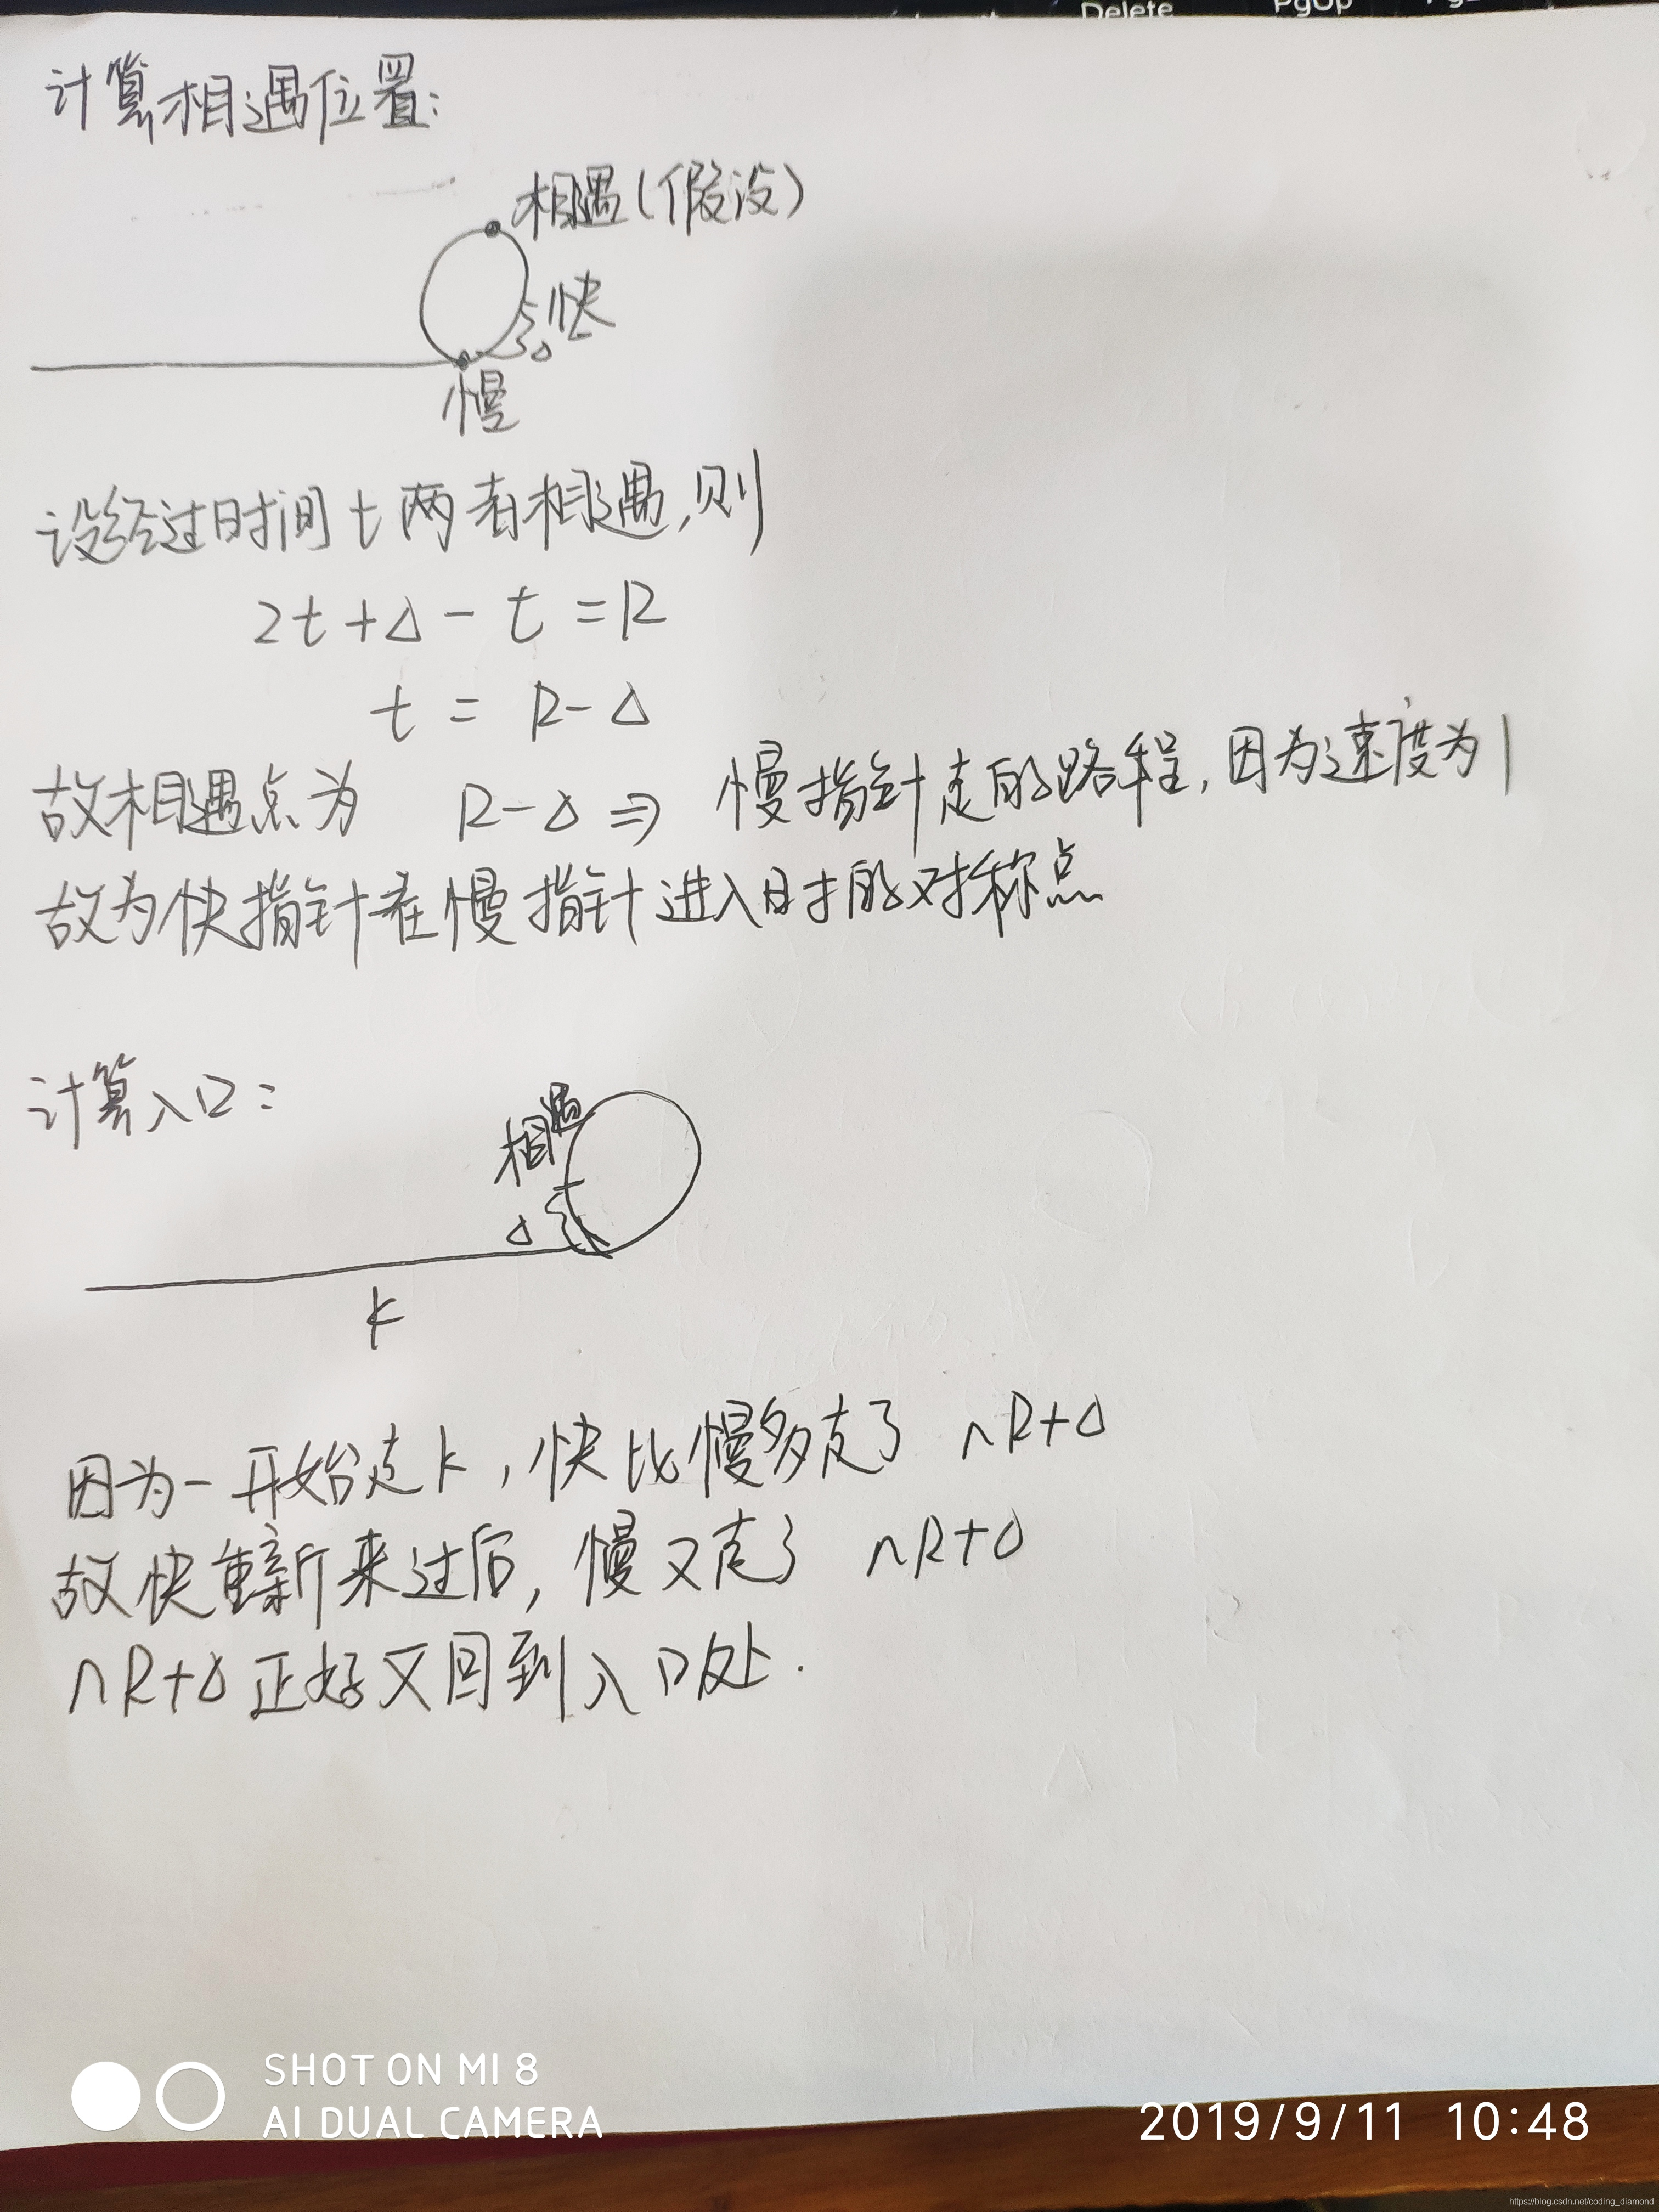 Delete
PgUp
计算相遇位置:
相遇(假设)
快
Δ
慢
设经过时间t两者相遇,则
2t+Δ-t=R
t=R-Δ
故相遇点为 R-Δ⇒慢指针走的路程,因为速度为1
故为快指针在慢指针进入时的对称点
计算入口:
相遇
Δ
k
因为一开始走k,快比慢多走了 nR+Δ
故快重新来过后,慢又走了 nR+Δ
nR+Δ正好又回到入口处.
SHOT ON MI 8
AI DUAL CAMERA
2019/9/11 10:48
https://blog.csdn.net/coding_diamond